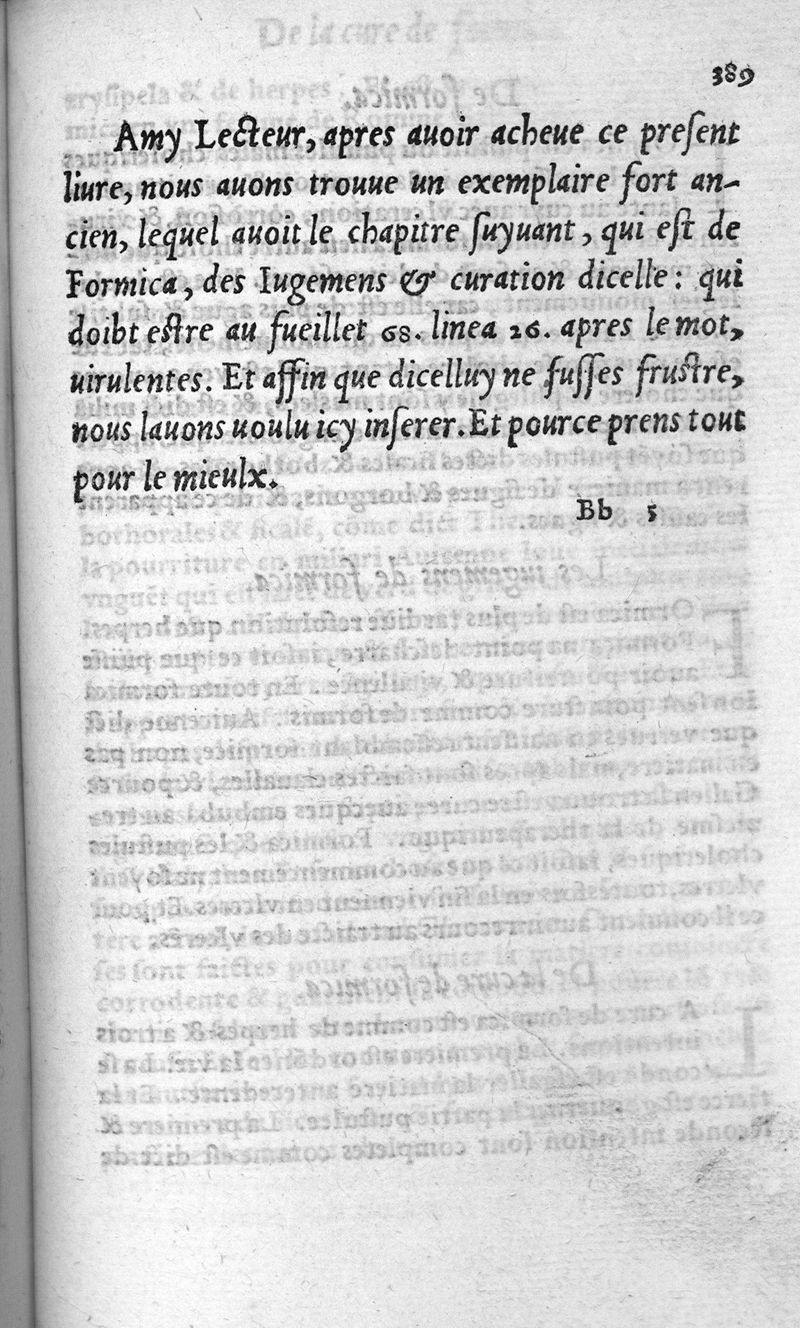 389
Amy Lecteur, apres auoir acheue ce preſent
liure, nous auons trouue un exemplaire fort an-
cien, lequel auoit le chapitre ſuyuant, qui eſt de
Formica, des Iugemens & curation dicelle: qui
doibt eſtre au fueillet 68. linea 26. apres le mot,
uirulentes. Et affin que dicelluy ne fuſſes fruſtre,
nous lauons uoulu icy inſerer. Et pource prens tout
pour le mieulx.
Bb 5